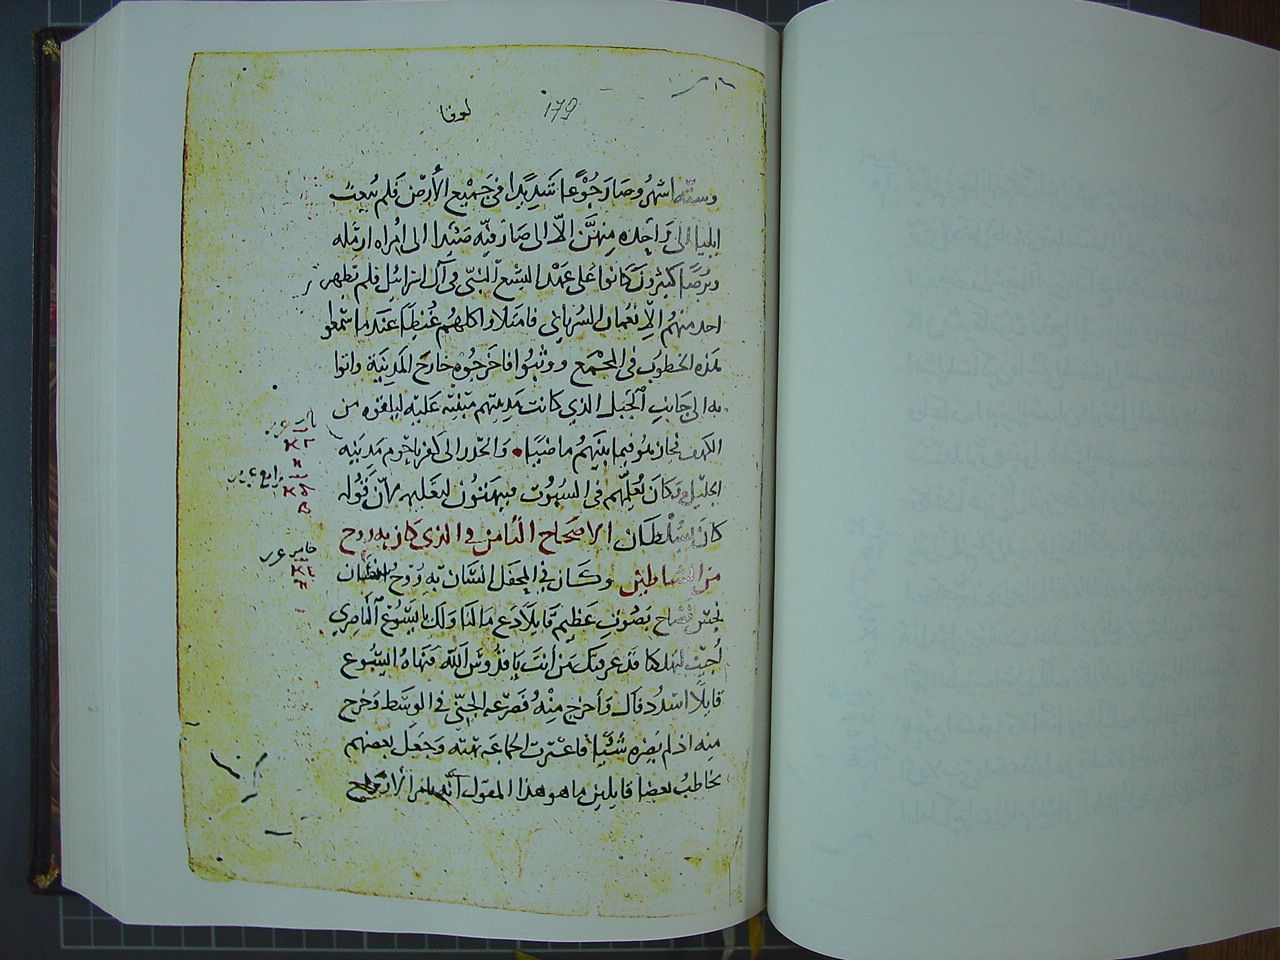 لوقا
179
وستة اشهر وصار جُوعًا شديدًا في جميع الأرض فلم يُبعث
ايليا الى واحده منهنَّ الّا الى صارفيّه صَيْدا الى امراه ارمله
وبُرصًا كثيرون كانوا على عهد اليسع النبّي في آل اسرائيل فلم تطهر
احد منهُم الّا نعمان السُرياني فامتلاوا كلهم غيظًا عند ما سمعوا
هذه الخطوب في المجمع ووثبُوا فاخرجوه خارج المدينة واتوا
به الى جانب الجبل الذي كانت مدينتهم مبنيّه عليه ليلقوه من
الكهف فجاز هُو فيما بينهم ماضيًا والحدر الى كفرناحُوم مدينه
الجليل وكان يُعلّمهم في السبُوت فيبهتون لتعليمه لأنّ قوله
كان بسُلطان الاصحاح الثامن في الذي كان به روح
من الشياطين وكان في المحفل انسان به رُوح شيطان
نجس فصاح بصُوتٍ عظيم قايلًا دع مالنا ولك يا يسُوع الناصري
أجيت لتهلكنا قد عرفتك من أنت يا قدُوس الله فنهاهُ اليسُوع
قايلًا اسدُد فاك وأخرج منهُ فصرعه الجنّي في الوسَط وخرج
منه اذ لم يضره شيًّا فاعترت الجماعه بهته وجعل بعضهم
يخاطبُ بعضا قايلين ما هو هذا المقول أنه يامر الارواح